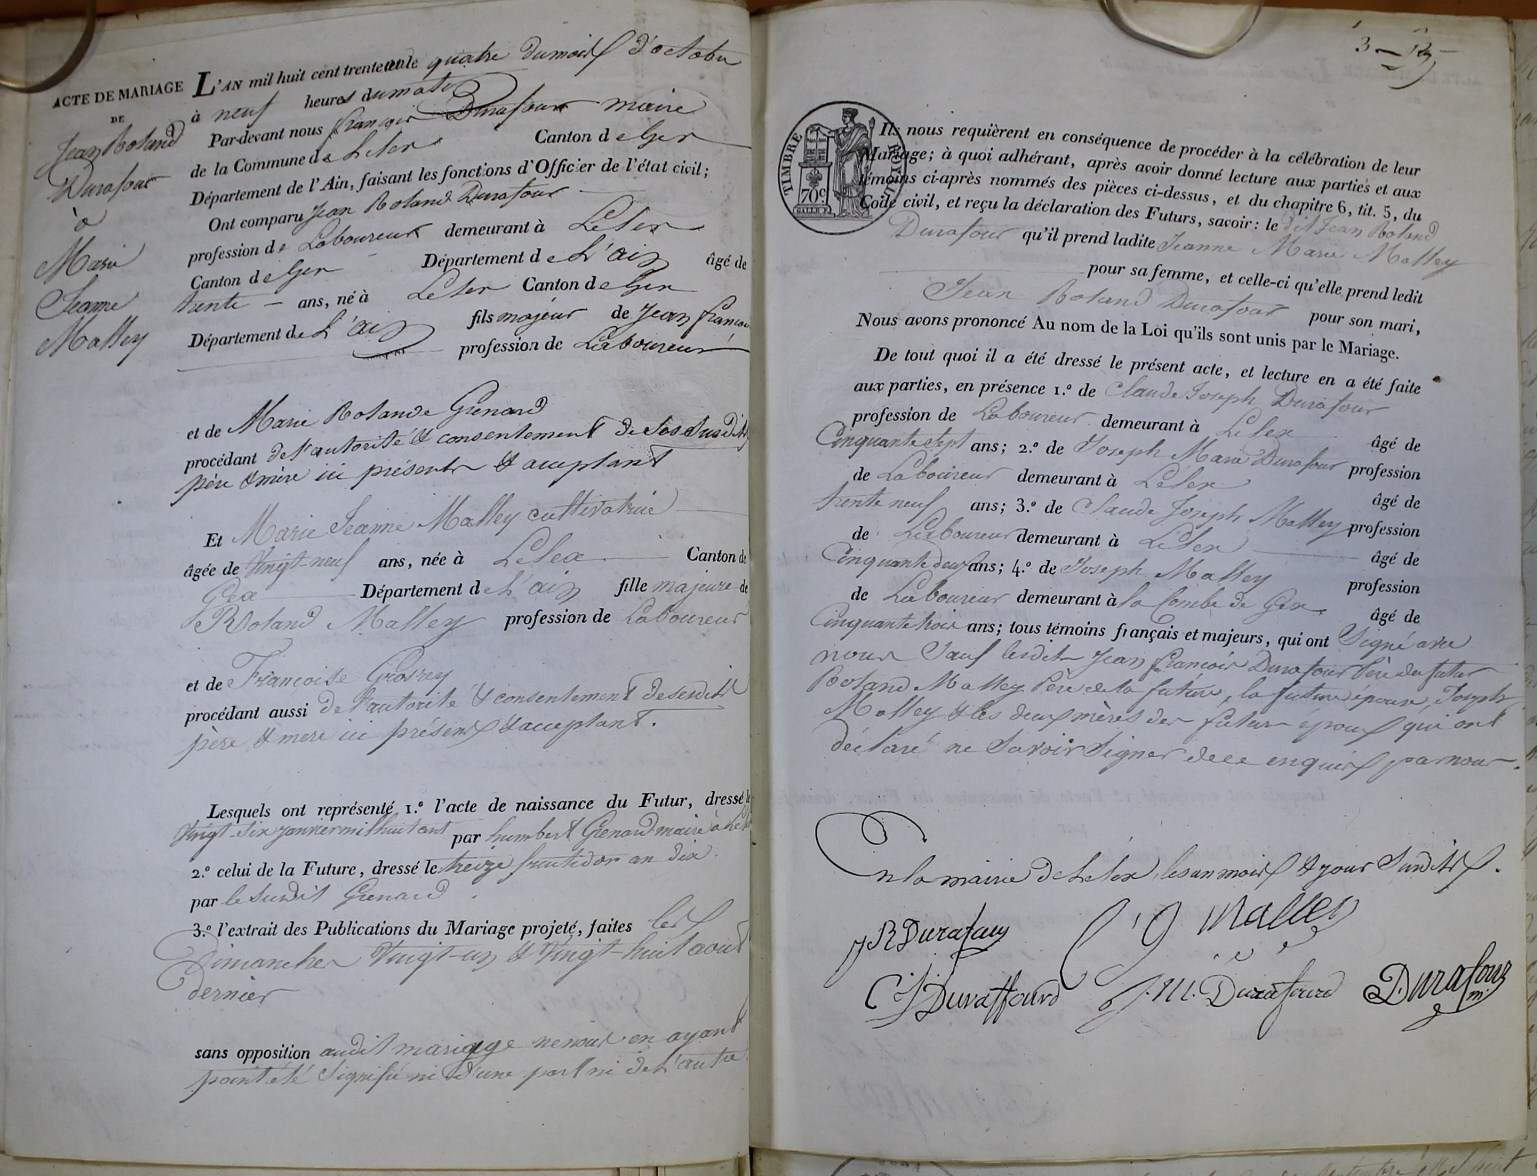 ACTE DE MARIAGE
DE
Jean Roland
Durafour
à
Marie
Jeanne
Malley
L'AN mil huit cent trente un le quatre du mois d'octobre
à neuf heures du matin
Par-devant nous françois Durafour maire
de la Commune de Lelex Canton de Gex
Département de l'Ain, faisant les fonctions d'Officier de l'état civil;
Ont comparu Jean Roland Durafour
profession de Laboureur demeurant à Lelex
Canton de Gex Département de L'ain âgé de
trente ans, né à Lelex Canton de Gex
Département de L'ain fils majeur de Jean françois
profession de Laboureur
et de Marie Rolande Grenard
procédant de l'autorité & consentement de ses susdits
père & mère ici présents & acceptant
Et Marie Jeanne Malley cultivatrice
âgée de Vingt neuf ans, née à Lelex Canton de
Gex Département de L'ain fille majeure de
Roland Malley profession de Laboureur
et de Francoise Grosrey
procédant aussi de l'autorité & consentement de sesdits
père & mere ici présens & acceptant.
Lesquels ont représenté 1.º l'acte de naissance du Futur, dressé le
Vingt six janvier mil huit cent par humbert Grenard maire à
2.º celui de la Future, dressé le treize fructidor an dix.
par le susdit Grenard.
3.º l'extrait des Publications du Mariage projeté, faites les
Dimanches Vingt-un & Vingt-huit aout
dernier
sans opposition audit mariage ne nous en ayant
point été signifié ni d'une part ni de L'autre
TIMBRE ROYAL
70 c
Ils nous requièrent en conséquence de procéder à la célébration de leur
Mariage; à quoi adhérant, après avoir donné lecture aux parties et aux
témoins ci-après nommés des pièces ci-dessus, et du chapitre 6, tit. 5, du
Code civil, et reçu la déclaration des Futurs, savoir: le dit Jean Roland
Durafour qu'il prend ladite Jeanne Marie Malley
pour sa femme, et celle-ci qu'elle prend ledit
Jean Roland Durafour pour son mari,
Nous avons prononcé Au nom de la Loi qu'ils sont unis par le Mariage.
De tout quoi il a été dressé le présent acte, et lecture en a été faite
aux parties, en présence 1.º de Claude Joseph Durafour
profession de Laboureur demeurant à Lelex âgé de
Cinquante sept ans; 2.º de Joseph Marie Durafour profession
de Laboureur demeurant à Lelex âgé de
trente neuf ans; 3.º de Claude Joseph Malley profession
de Laboureur demeurant à Lelex âgé de
Cinquante deux ans; 4.º de Joseph Malley profession
de Laboureur demeurant à la Combe de Gex âgé de
Cinquante trois ans; tous témoins français et majeurs, qui ont Signé avec
nous Sauf lesdits Jean françois Durafour Père du futur
Roland Malley Père de la future, la future épouse, Joseph
Malley & les deux mères des futurs epoux qui ont
déclaré ne Savoir Signer de ce enquis par nous.
En la mairie de Lelex les an mois & jour Susdits.
J R Durafour
C J Malley
C J Duraffourd
J. M. Durafourd
Durafour m.